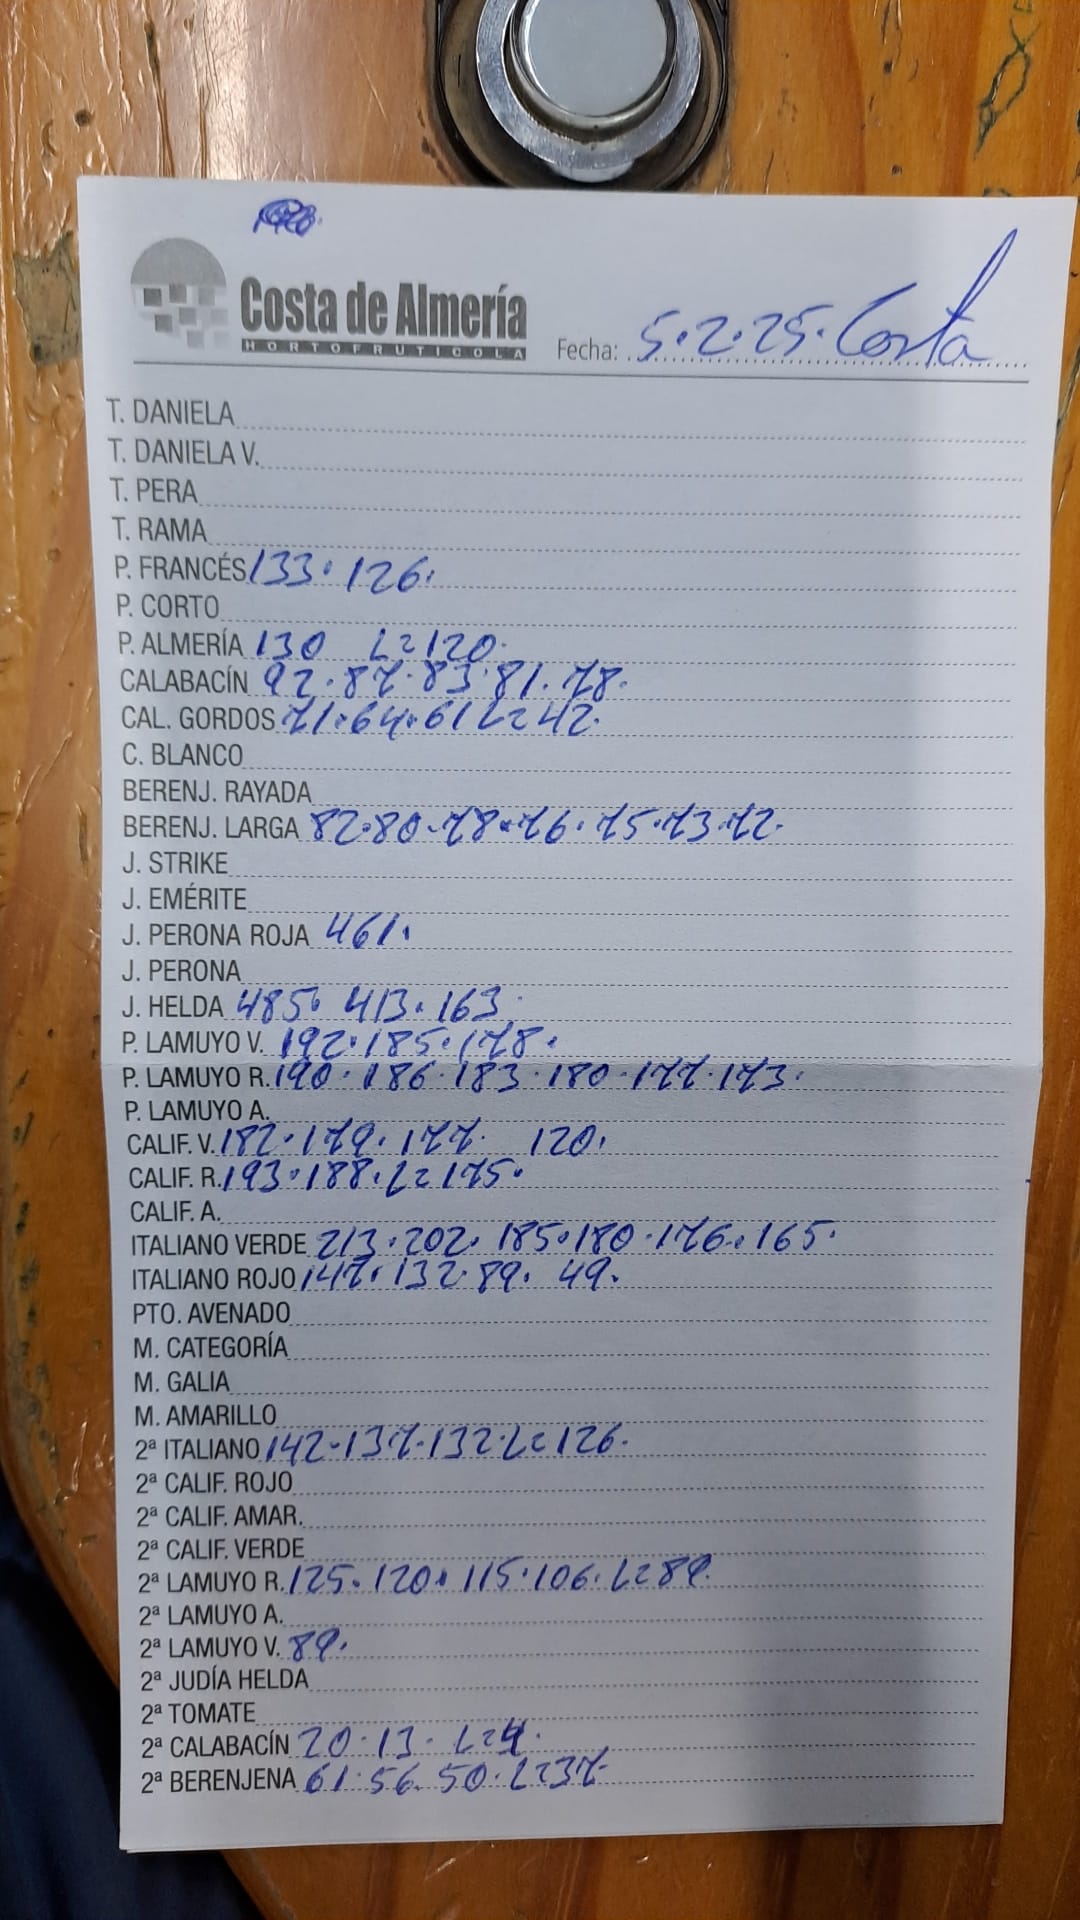 Costa de Almería
HORTOFRUTICOLA
Fecha: 5.2.25. Costa
T. DANIELA
T. DANIELA V.
T. PERA
T. RAMA
P. FRANCÉS 133. 126.
P. CORTO
P. ALMERÍA 130 L2 120.
CALABACÍN 92.87.83.81.78.
CAL. GORDOS 71.64.61 L2 42.
C. BLANCO
BERENJ. RAYADA
BERENJ. LARGA 82.80.78.76.75.73.72.
J. STRIKE
J. EMÉRITE
J. PERONA ROJA 461.
J. PERONA
J. HELDA 485. 413. 163.
P. LAMUYO V. 192.185.178.
P. LAMUYO R. 190.186.183.180.177.173.
P. LAMUYO A.
CALIF. V. 182.179.177. 120.
CALIF. R. 193.188. L2 175.
CALIF. A.
ITALIANO VERDE 213.202. 185.180.176.165.
ITALIANO ROJO 147.132.89. 49.
PTO. AVENADO
M. CATEGORÍA
M. GALIA
M. AMARILLO
2ª ITALIANO 142.137.132. L2 126.
2ª CALIF. ROJO
2ª CALIF. AMAR.
2ª CALIF. VERDE
2ª LAMUYO R. 125.120.115.106. L2 89.
2ª LAMUYO A.
2ª LAMUYO V. 89.
2ª JUDÍA HELDA
2ª TOMATE
2ª CALABACÍN 20.13. L2 4.
2ª BERENJENA 61.56.50. L2 37.